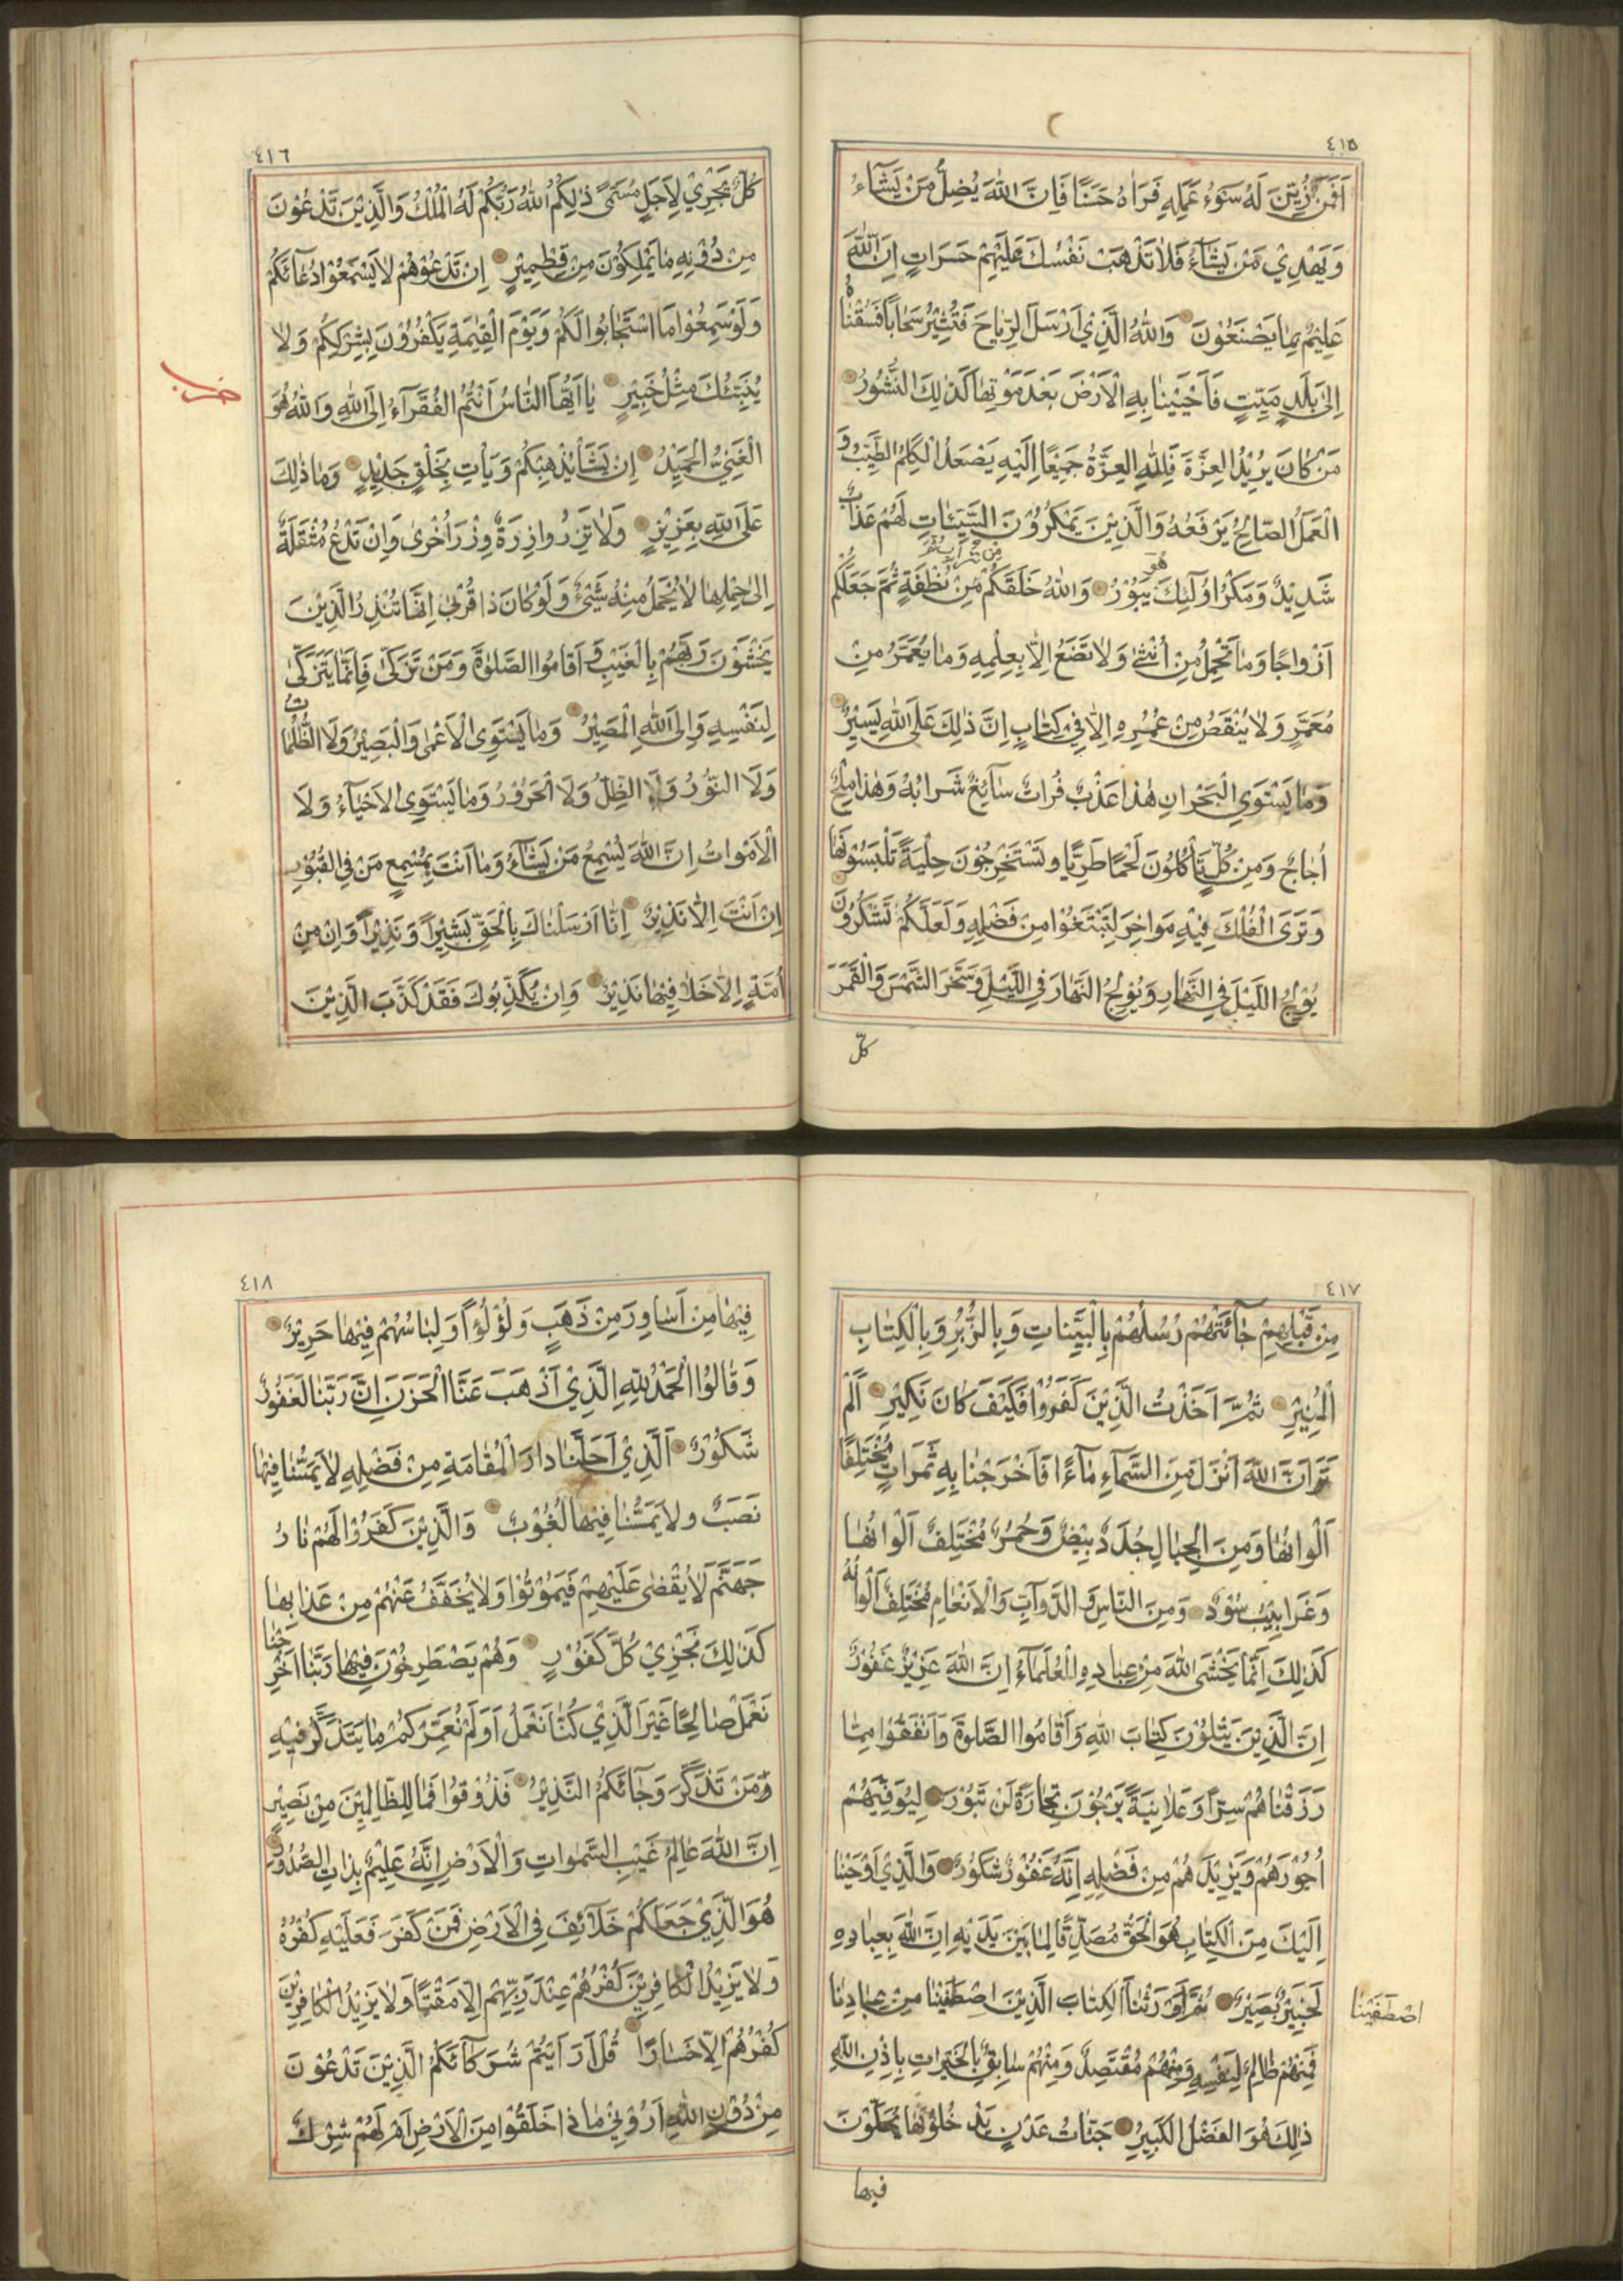 ٤١٥
اَفَمَنْ زُيِّنَ لَهُ سُوۤءُ عَمَلِهِ فَرَاٰهُ حَسَنًا فَاِنَّ اللّٰهَ يُضِلُّ مَنْ يَشَآءُ
وَيَهْدِيْ مَنْ يَشَآءُ فَلَا تَذْهَبْ نَفْسُكَ عَلَيْهِمْ حَسَرَاتٍ اِنَّ اللّٰهَ
عَلِيْمٌ بِمَا يَصْنَعُوْنَ وَاللّٰهُ الَّذِيْ اَرْسَلَ الرِّيَاحَ فَتُثِيْرُ سَحَابًا فَسُقْنَاهُ
اِلٰى بَلَدٍ مَيِّتٍ فَاَحْيَيْنَا بِهِ الْاَرْضَ بَعْدَ مَوْتِهَا كَذٰلِكَ النُّشُوْرُ
مَنْ كَانَ يُرِيْدُ الْعِزَّةَ فَلِلّٰهِ الْعِزَّةُ جَمِيْعًا اِلَيْهِ يَصْعَدُ الْكَلِمُ الطَّيِّبُ وَ
الْعَمَلُ الصَّالِحُ يَرْفَعُهُ وَالَّذِيْنَ يَمْكُرُوْنَ السَّيِّئَاتِ لَهُمْ عَذَابٌ
شَدِيْدٌ وَمَكْرُ اُولٰۤئِكَ هُوَ يَبُوْرُ وَاللّٰهُ خَلَقَكُمْ مِنْ تُرَابٍ ثُمَّ مِنْ نُطْفَةٍ ثُمَّ جَعَلَكُمْ
اَزْوَاجًا وَمَا تَحْمِلُ مِنْ اُنْثٰى وَلَا تَضَعُ اِلَّا بِعِلْمِهِ وَمَا يُعَمَّرُ مِنْ
مُعَمَّرٍ وَلَا يُنْقَصُ مِنْ عُمُرِهِ اِلَّا فِيْ كِتَابٍ اِنَّ ذٰلِكَ عَلَى اللّٰهِ يَسِيْرٌ
وَمَا يَسْتَوِي الْبَحْرَانِ هٰذَا عَذْبٌ فُرَاتٌ سَآئِغٌ شَرَابُهُ وَهٰذَا مِلْحٌ
اُجَاجٌ وَمِنْ كُلٍّ تَأْكُلُوْنَ لَحْمًا طَرِيًّا وَتَسْتَخْرِجُوْنَ حِلْيَةً تَلْبَسُوْنَهَا
وَتَرَى الْفُلْكَ فِيْهِ مَوَاخِرَ لِتَبْتَغُوْا مِنْ فَضْلِهِ وَلَعَلَّكُمْ تَشْكُرُوْنَ
يُوْلِجُ اللَّيْلَ فِي النَّهَارِ وَيُوْلِجُ النَّهَارَ فِي اللَّيْلِ وَسَخَّرَ الشَّمْسَ وَالْقَمَرَ
كُلٌّ
٤١٦
كُلٌّ يَجْرِيْ لِاَجَلٍ مُسَمًّى ذٰلِكُمُ اللّٰهُ رَبُّكُمْ لَهُ الْمُلْكُ وَالَّذِيْنَ تَدْعُوْنَ
مِنْ دُوْنِهِ مَا يَمْلِكُوْنَ مِنْ قِطْمِيْرٍ اِنْ تَدْعُوْهُمْ لَا يَسْمَعُوْا دُعَآئَكُمْ
وَلَوْ سَمِعُوْا مَا اسْتَجَابُوْا لَكُمْ وَيَوْمَ الْقِيٰمَةِ يَكْفُرُوْنَ بِشِرْكِكُمْ وَلَا
يُنَبِّئُكَ مِثْلُ خَبِيْرٍ يَا اَيُّهَا النَّاسُ اَنْتُمُ الْفُقَرَآءُ اِلَى اللّٰهِ وَاللّٰهُ هُوَ
حزب
الْغَنِيُّ الْحَمِيْدُ اِنْ يَشَأْ يُذْهِبْكُمْ وَيَأْتِ بِخَلْقٍ جَدِيْدٍ وَمَا ذٰلِكَ
عَلَى اللّٰهِ بِعَزِيْزٍ وَلَا تَزِرُ وَازِرَةٌ وِزْرَ اُخْرٰى وَاِنْ تَدْعُ مُثْقَلَةٌ
اِلٰى حِمْلِهَا لَا يُحْمَلْ مِنْهُ شَيْئٌ وَلَوْ كَانَ ذَا قُرْبٰى اِنَّمَا تُنْذِرُ الَّذِيْنَ
يَخْشَوْنَ رَبَّهُمْ بِالْغَيْبِ وَ اَقَامُوا الصَّلٰوةَ وَمَنْ تَزَكّٰى فَاِنَّمَا يَتَزَكّٰى
لِنَفْسِهِ وَاِلَى اللّٰهِ الْمَصِيْرُ وَمَا يَسْتَوِي الْاَعْمٰى وَالْبَصِيْرُ وَلَا الظُّلُمَاتُ
وَلَا النُّوْرُ وَلَا الظِّلُّ وَلَا الْحَرُوْرُ وَمَا يَسْتَوِي الْاَحْيَآءُ وَلَا
الْاَمْوَاتُ اِنَّ اللّٰهَ يُسْمِعُ مَنْ يَشَآءُ وَمَا اَنْتَ بِمُسْمِعٍ مَنْ فِي الْقُبُوْرِ
اِنْ اَنْتَ اِلَّا نَذِيْرٌ اِنَّا اَرْسَلْنَاكَ بِالْحَقِّ بَشِيْرًا وَنَذِيْرًا وَاِنْ مِنْ
اُمَّةٍ اِلَّا خَلَا فِيْهَا نَذِيْرٌ وَاِنْ يُكَذِّبُوْكَ فَقَدْ كَذَّبَ الَّذِيْنَ
٤١٧
مِنْ قَبْلِهِمْ جَآئَتْهُمْ رُسُلُهُمْ بِالْبَيِّنَاتِ وَبِالزُّبُرِ وَبِالْكِتَابِ
الْمُنِيْرِ ثُمَّ اَخَذْتُ الَّذِيْنَ كَفَرُوْا فَكَيْفَ كَانَ نَكِيْرِ اَلَمْ
تَرَ اَنَّ اللّٰهَ اَنْزَلَ مِنَ السَّمَآءِ مَآءً فَاَخْرَجْنَا بِهِ ثَمَرَاتٍ مُخْتَلِفًا
اَلْوَانُهَا وَمِنَ الْجِبَالِ جُدَدٌ بِيْضٌ وَحُمْرٌ مُخْتَلِفٌ اَلْوَانُهَا
وَغَرَابِيْبُ سُوْدٌ وَمِنَ النَّاسِ وَالدَّوَآبِّ وَالْاَنْعَامِ مُخْتَلِفٌ اَلْوَانُهُ
كَذٰلِكَ اِنَّمَا يَخْشَى اللّٰهَ مِنْ عِبَادِهِ الْعُلَمَآءُ اِنَّ اللّٰهَ عَزِيْزٌ غَفُوْرٌ
اِنَّ الَّذِيْنَ يَتْلُوْنَ كِتَابَ اللّٰهِ وَاَقَامُوا الصَّلٰوةَ وَاَنْفَقُوْا مِمَّا
رَزَقْنَاهُمْ سِرًّا وَعَلَانِيَةً يَرْجُوْنَ تِجَارَةً لَنْ تَبُوْرَ لِيُوَفِّيَهُمْ
اُجُوْرَهُمْ وَيَزِيْدَهُمْ مِنْ فَضْلِهِ اِنَّهُ غَفُوْرٌ شَكُوْرٌ وَالَّذِيْ اَوْحَيْنَا
اِلَيْكَ مِنَ الْكِتَابِ هُوَ الْحَقُّ مُصَدِّقًا لِمَا بَيْنَ يَدَيْهِ اِنَّ اللّٰهَ بِعِبَادِهِ
لَخَبِيْرٌ بَصِيْرٌ ثُمَّ اَوْرَثْنَا الْكِتَابَ الَّذِيْنَ اصْطَفَيْنَا مِنْ عِبَادِنَا
اصْطَفَيْنَا
فَمِنْهُمْ ظَالِمٌ لِنَفْسِهِ وَمِنْهُمْ مُقْتَصِدٌ وَمِنْهُمْ سَابِقٌ بِالْخَيْرَاتِ بِاِذْنِ اللّٰهِ
ذٰلِكَ هُوَ الْفَضْلُ الْكَبِيْرُ جَنَّاتُ عَدْنٍ يَدْخُلُوْنَهَا يُحَلَّوْنَ
فِيْهَا
٤١٨
فِيْهَا مِنْ اَسَاوِرَ مِنْ ذَهَبٍ وَلُؤْلُؤًا وَلِبَاسُهُمْ فِيْهَا حَرِيْرٌ
وَقَالُوْا الْحَمْدُ لِلّٰهِ الَّذِيْ اَذْهَبَ عَنَّا الْحَزَنَ اِنَّ رَبَّنَا لَغَفُوْرٌ
شَكُوْرٌ اَلَّذِيْ اَحَلَّنَا دَارَ الْمُقَامَةِ مِنْ فَضْلِهِ لَا يَمَسُّنَا فِيْهَا
نَصَبٌ وَلَا يَمَسُّنَا فِيْهَا لُغُوْبٌ وَالَّذِيْنَ كَفَرُوْا لَهُمْ نَارُ
جَهَنَّمَ لَا يُقْضٰى عَلَيْهِمْ فَيَمُوْتُوْا وَلَا يُخَفَّفُ عَنْهُمْ مِنْ عَذَابِهَا
كَذٰلِكَ نَجْزِيْ كُلَّ كَفُوْرٍ وَهُمْ يَصْطَرِخُوْنَ فِيْهَا رَبَّنَا اَخْرِجْنَا
نَعْمَلْ صَالِحًا غَيْرَ الَّذِيْ كُنَّا نَعْمَلُ اَوَلَمْ نُعَمِّرْكُمْ مَا يَتَذَكَّرُ فِيْهِ
مَنْ تَذَكَّرَ وَجَآئَكُمُ النَّذِيْرُ فَذُوْقُوْا فَمَا لِلظَّالِمِيْنَ مِنْ نَصِيْرٍ
اِنَّ اللّٰهَ عَالِمُ غَيْبِ السَّمٰوَاتِ وَالْاَرْضِ اِنَّهُ عَلِيْمٌ بِذَاتِ الصُّدُوْرِ
هُوَ الَّذِيْ جَعَلَكُمْ خَلَآئِفَ فِي الْاَرْضِ فَمَنْ كَفَرَ فَعَلَيْهِ كُفْرُهُ
وَلَا يَزِيْدُ الْكَافِرِيْنَ كُفْرُهُمْ عِنْدَ رَبِّهِمْ اِلَّا مَقْتًا وَلَا يَزِيْدُ الْكَافِرِيْنَ
كُفْرُهُمْ اِلَّا خَسَارًا قُلْ اَرَاَيْتُمْ شُرَكَآئَكُمُ الَّذِيْنَ تَدْعُوْنَ
مِنْ دُوْنِ اللّٰهِ اَرُوْنِيْ مَاذَا خَلَقُوْا مِنَ الْاَرْضِ اَمْ لَهُمْ شِرْكٌ